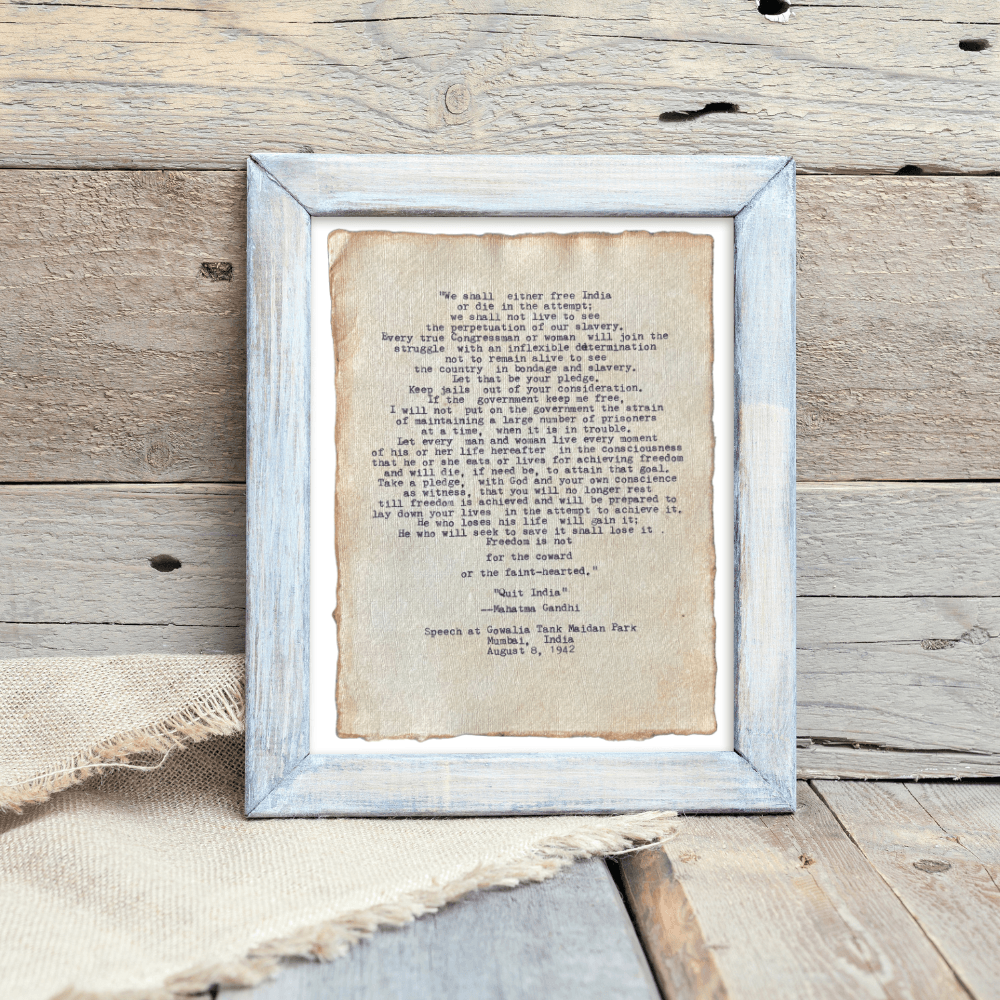 "We shall either free India
or die in the attempt;
we shall not live to see
the perpetuation of our slavery.
Every true Congressman or woman will join the
struggle with an inflexible determination
not to remain alive to see
the country in bondage and slavery.
Let that be your pledge.
Keep jails out of your consideration.
If the government keep me free,
I will not put on the government the strain
of maintaining a large number of prisoners
at a time, when it is in trouble.
Let every man and woman live every moment
of his or her life hereafter in the consciousness
that he or she eats or lives for achieving freedom
and will die, if need be, to attain that goal.
Take a pledge, with God and your own conscience
as witness, that you will no longer rest
till freedom is achieved and will be prepared to
lay down your lives in the attempt to achieve it.
He who loses his life will gain it;
He who will seek to save it shall lose it .
Freedom is not
for the coward
or the faint-hearted."
"Quit India"
--Mahatma Gandhi
Speech at Gowalia Tank Maidan Park
Mumbai, India
August 8, 1942